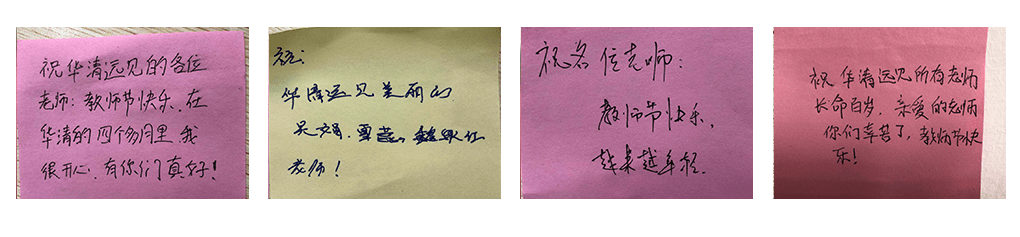 祝华清远见的各位
老师：教师节快乐、在
华清的四个多月里，我
很开心、有你们真好！
祝：
华清远见美丽的
老师！
祝各位老师：
教师节快乐，
越来越年轻.
祝 华清远见所有老师
长命百岁. 亲爱的老师
你们辛苦了，教师节快
乐！